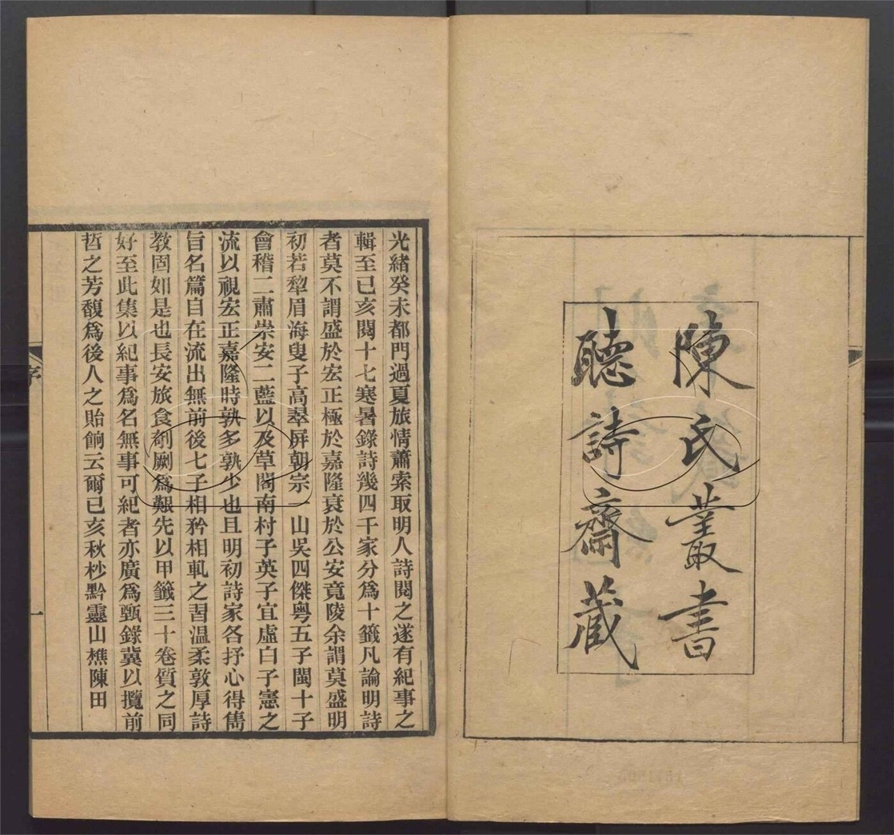 陳氏叢書
聽詩齋藏
光緒癸未都門過夏旅情蕭索取明人詩閱之遂有紀事之
輯至己亥閱十七寒暑錄詩幾四千家分爲十籤凡論明詩
者莫不謂盛於宏正極於嘉隆衰於公安竟陵余謂莫盛明
初若犂眉海叟子高翠屏朝宗一山吳四傑粵五子閩十子
會稽二肅崇安二藍以及草閣南村子英子宜虛白子憲之
流以視宏正嘉隆時孰多孰少也且明初詩家各抒心得雋
旨名篇自在流出無前後七子相矜相軋之習溫柔敦厚詩
教固如是也長安旅食剞劂爲艱先以甲籤三十卷質之同
好至此集以紀事爲名無事可紀者亦廣爲甄錄冀以攬前
哲之芳馥爲後人之貽餉云爾己亥秋杪黔靈山樵陳田
序
一